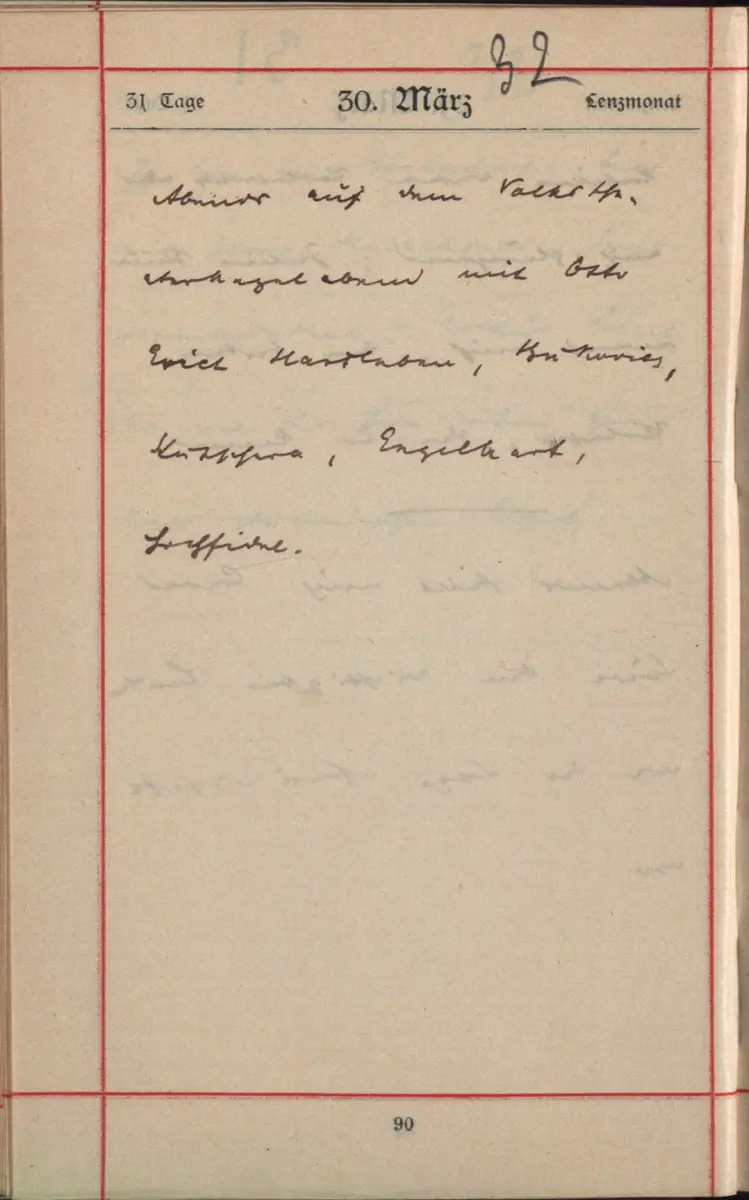 32
31 Tage 30. März Lenzmonat
Abends auf dem Volksthe-
aterkegelabend mit Otto
Erich Hartleben, Bukovics,
Kutschera, Engelhart,
90